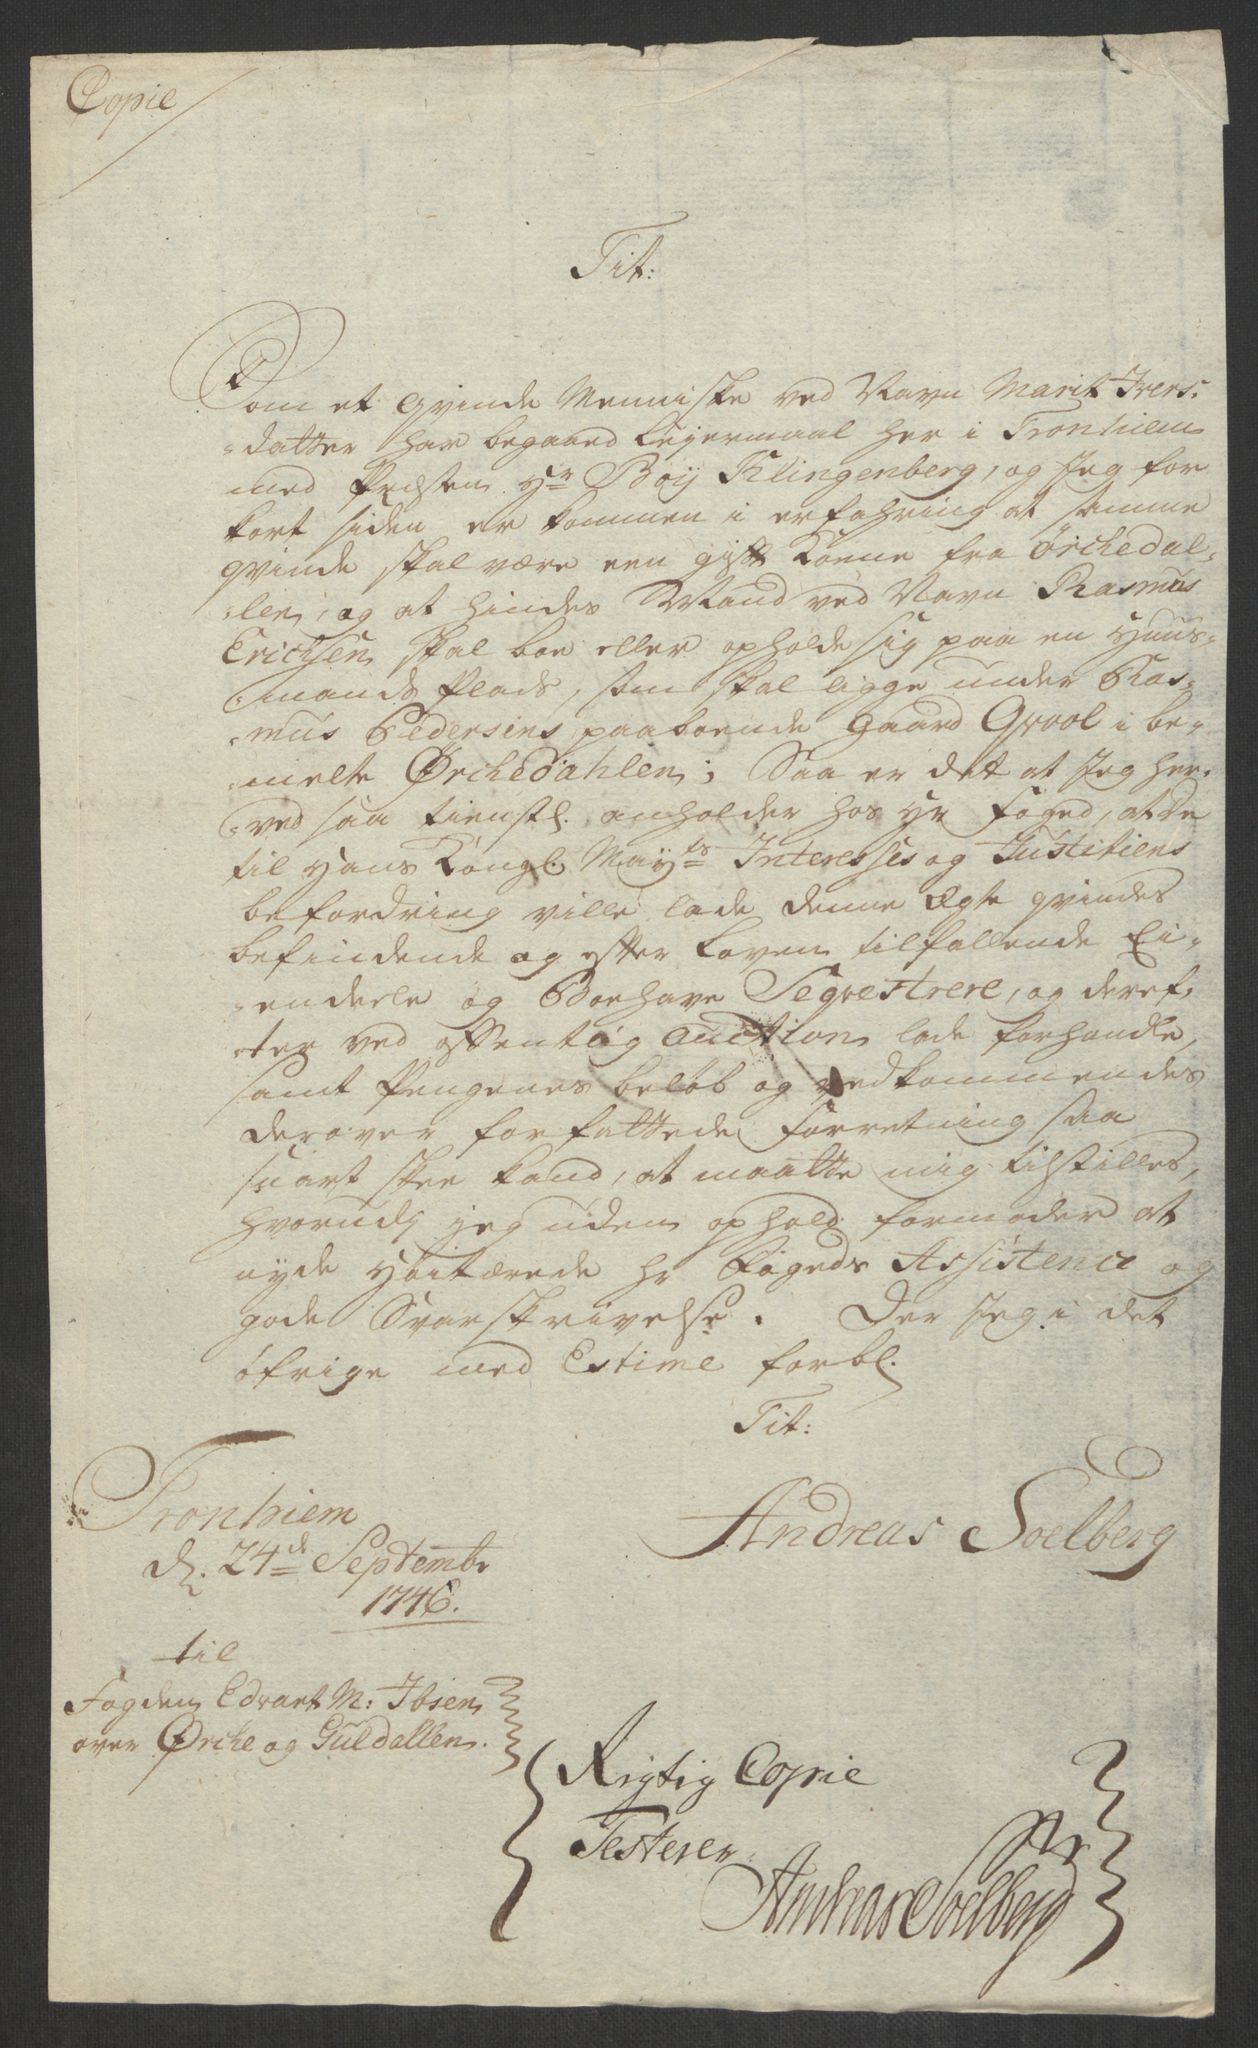 Copie
Tit:
Som et qvinde Menniske ved Navn Marit Ivers-
-datter har begaaed Leyermaal her i Tronhiem
med Præsten Hr Boij Klingenberg, og Jeg for
kort siden er kommen i erfahring at samme
qvinde skal være een gift Kone fra Ørchedal-
-len, og at hindes Mand ved Navn Rasmus
Erichsen skal boe eller opholde sig paa en Huus-
-mands Plads, som skal ligge under Ras-
-mus Pedersens paaboende gaard Qvool i be-
-melte Ørchedahlen; Saa er det at Jeg her-
-ved saa tienstl. anholder hos Hr Foged, at De
til Hans Kongl. Mayts Interesses og Justitiens
befordring ville lade denne Ægte qvindes
befindende og efter Loven tilfallende Ei-
-endeele og Boehave Seqvestrere, og deref-
-ter ved offentlig Auction lade forhandle,
samt Pengenes beløb og vedkommendes
derover forfattede Forretning saa
snart skee kand, at maatte mig tilstilles,
hvorudj jeg uden ophold formoder at
nyde Høitærede hr Fogeds Assistence og
gode Svarskrivelse. Der Jeg i det
øfrige med Estime forbl.
Tit:
Tronhiem
d. 24de Septembr
1746.
Andreas Soelberg
til
Fogden Edvart M: Ibsen
over Ørche og Guldallen.
Rigtig Copie
Testerer
Andreas Soelberg